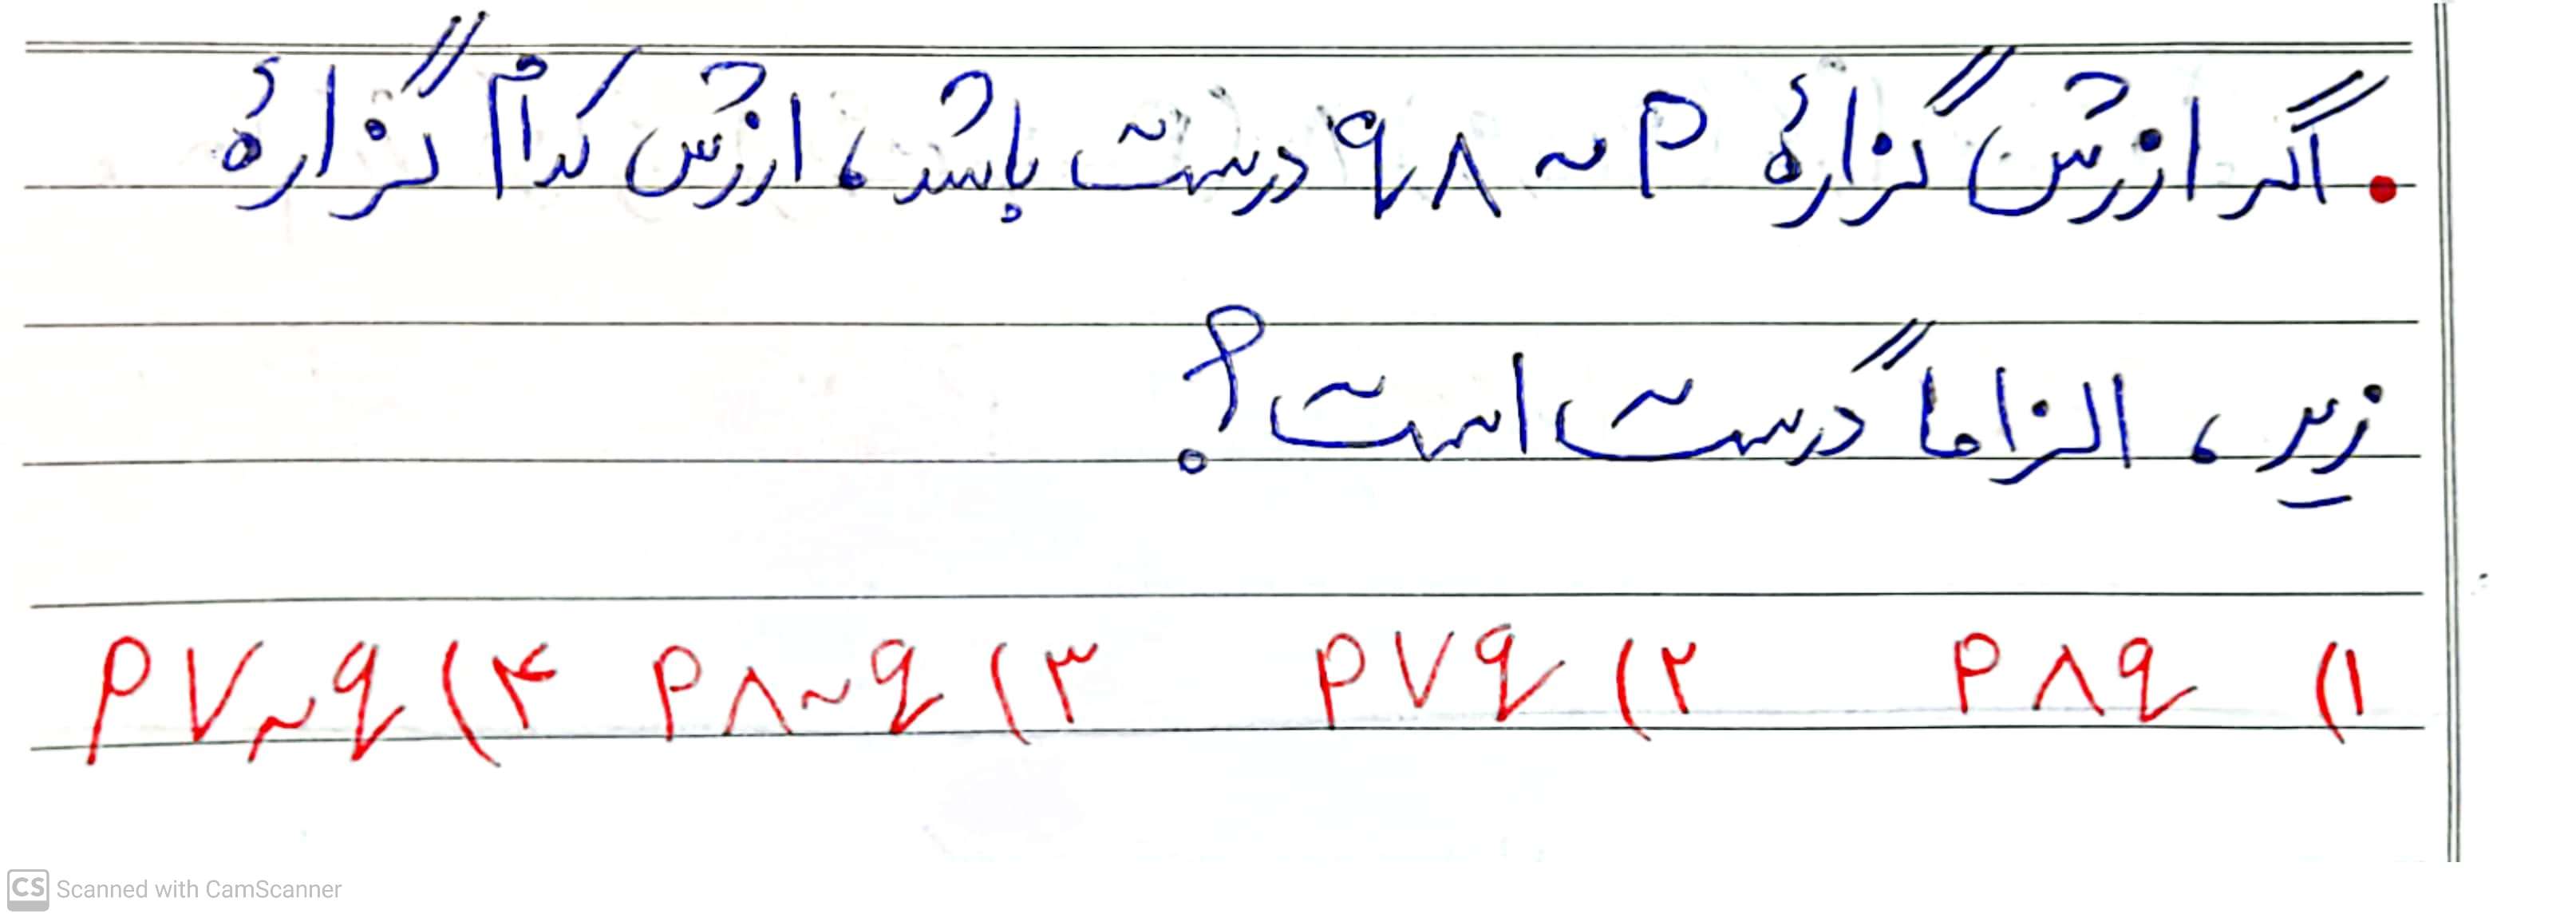 • اگر ارزش گزارهٔ q ∧ ~p درست باشد، ارزش کدام گزارهٔ
زیر، الزاماً درست است؟
۱) p ∧ q ۲) p ∨ q ۳) p ∧ ~q ۴) p ∨ ~q
CS Scanned with CamScanner